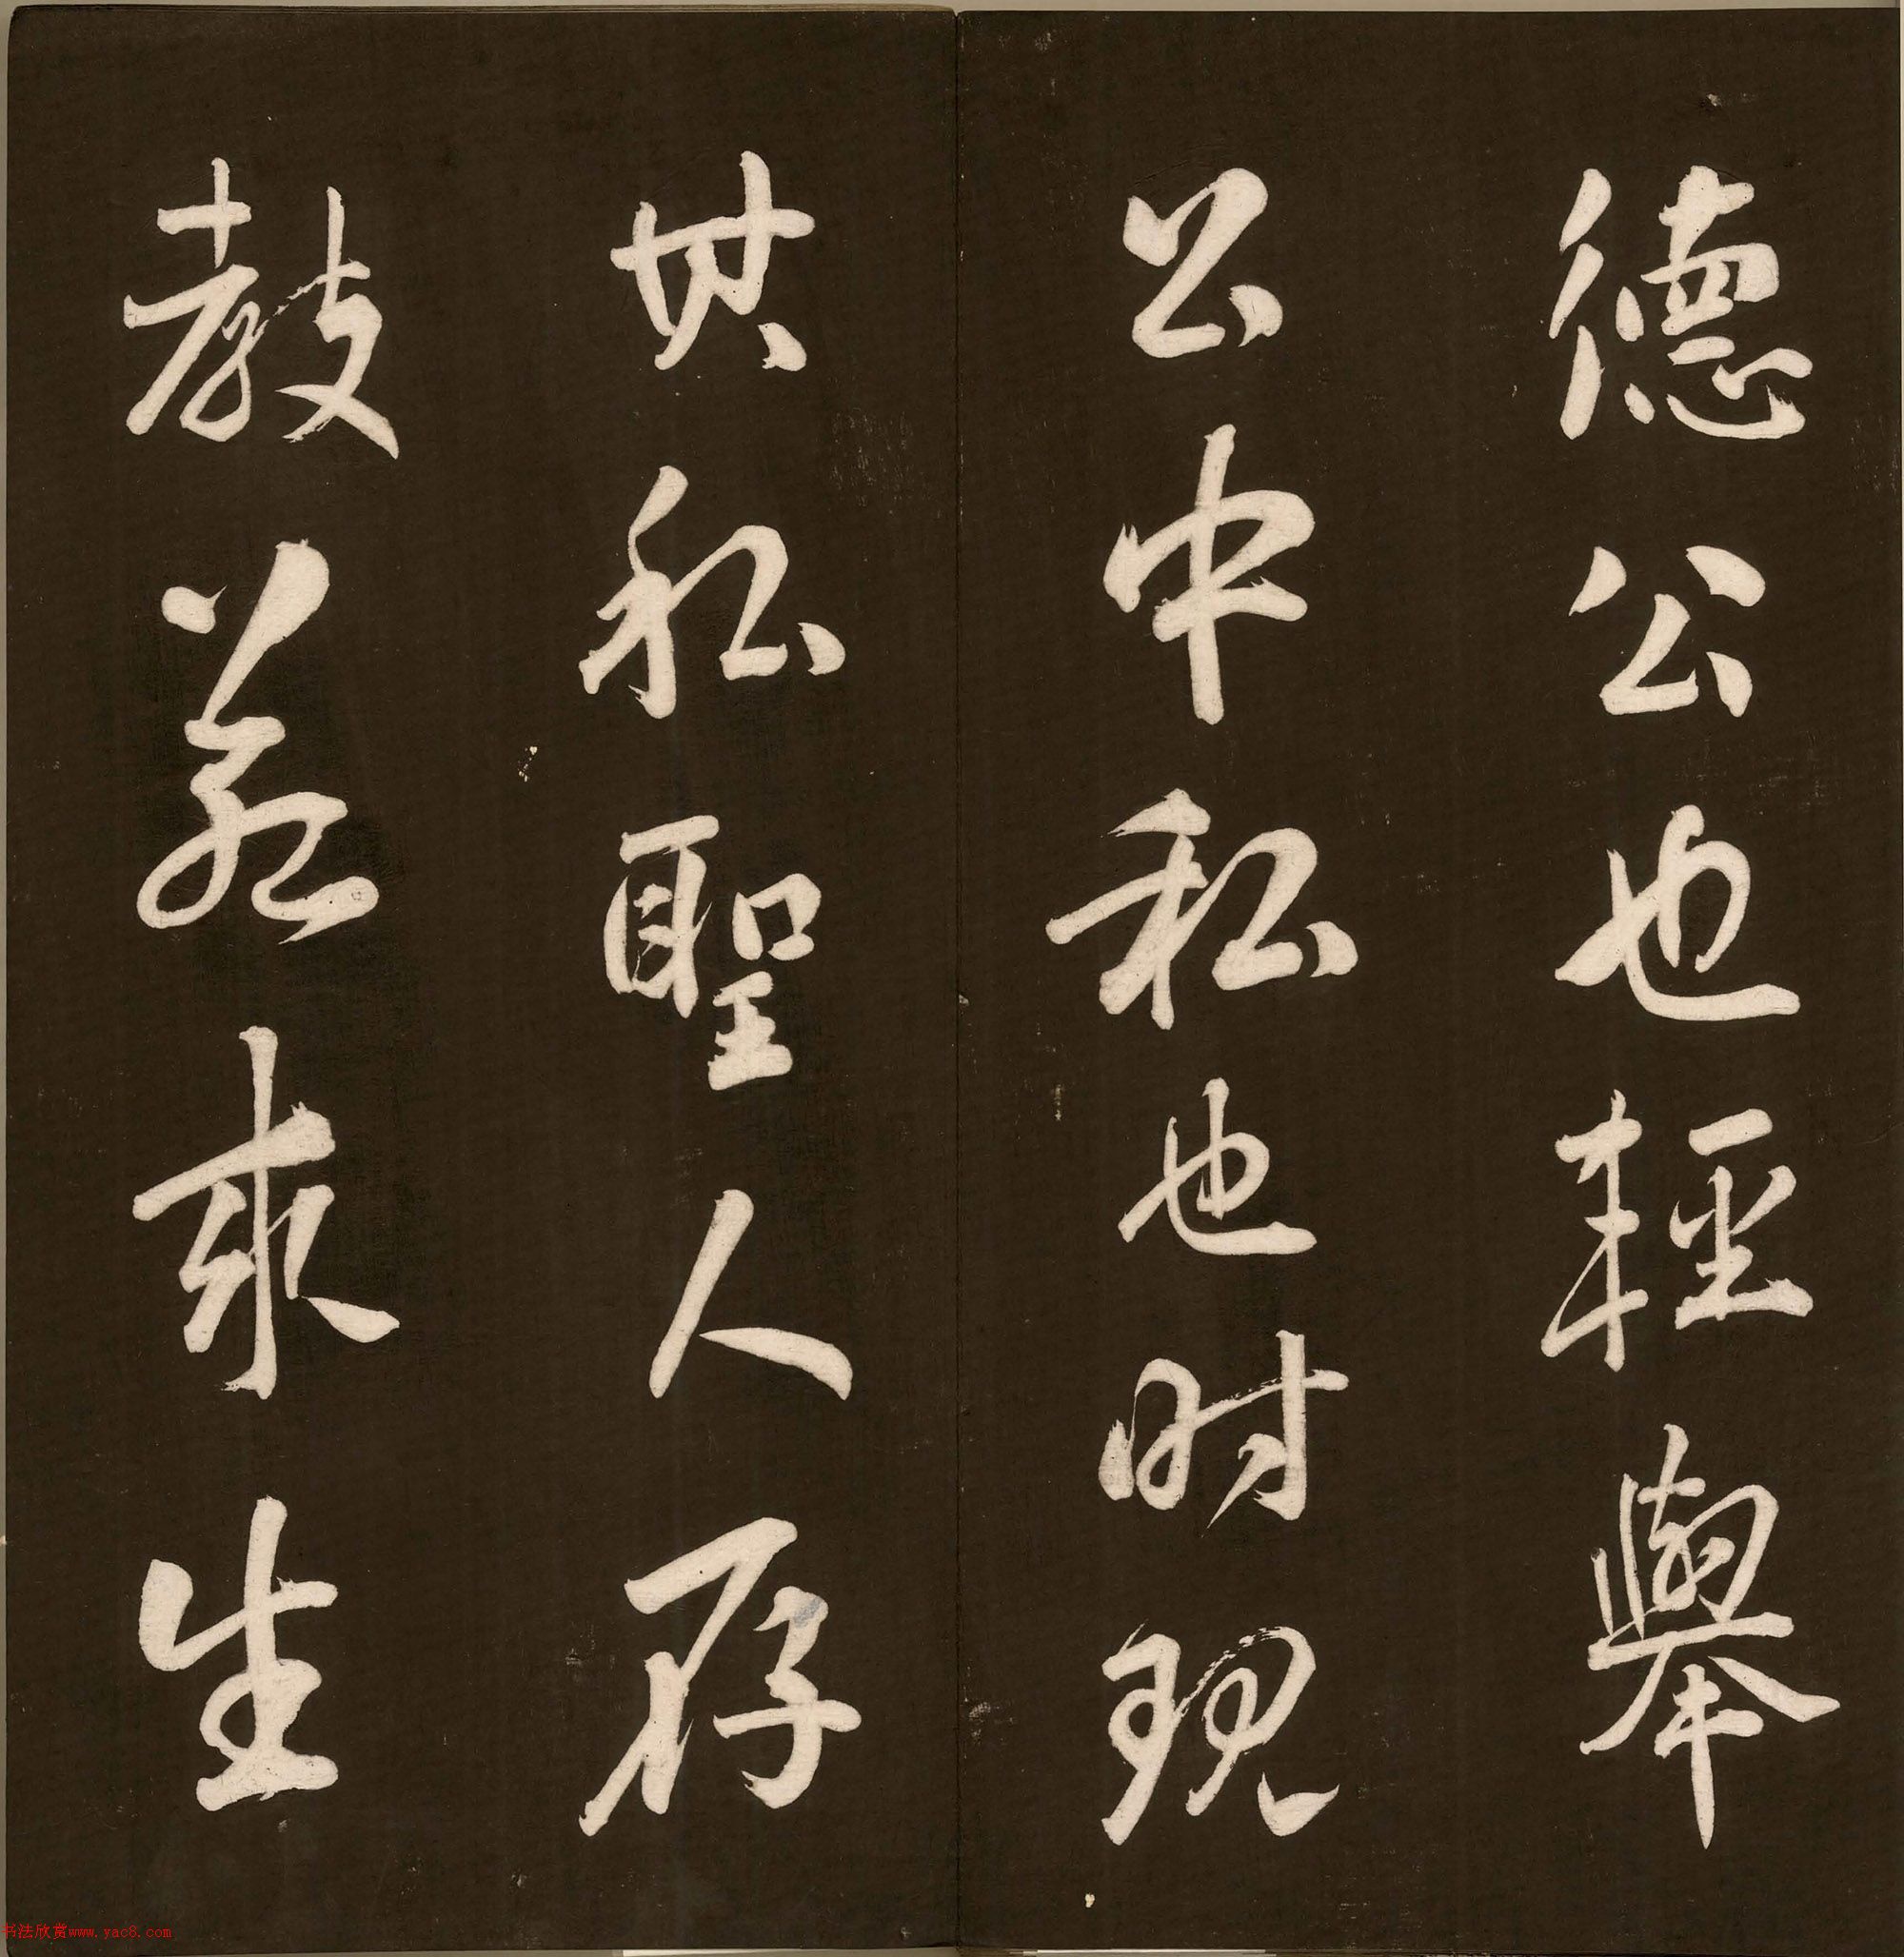 德公也輕舉
公中私也时現
其私聖人存
教若求生
书法欣赏www.yac8.com